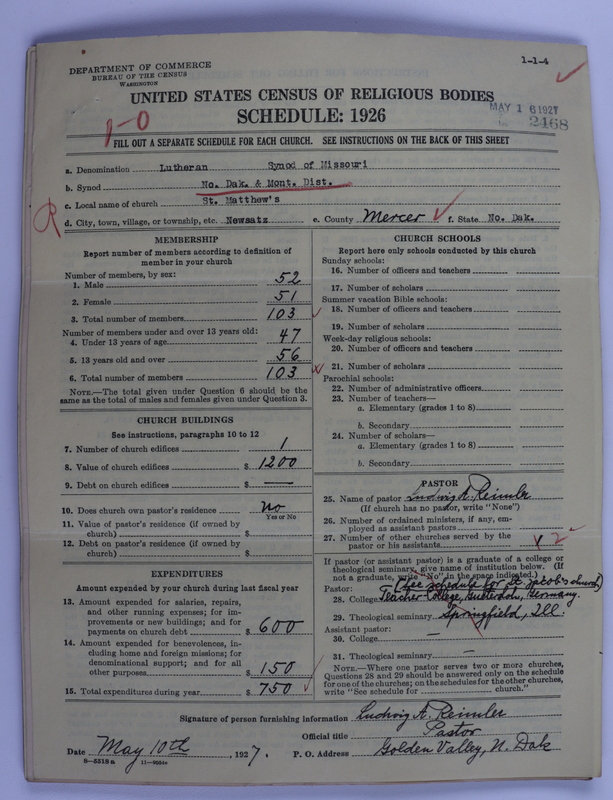 DEPARTMENT OF COMMERCE
BUREAU OF THE CENSUS
WASHINGTON
1-1-4
UNITED STATES CENSUS OF RELIGIOUS BODIES
SCHEDULE: 1926
MAY 16 1927
2468
1-0
FILL OUT A SEPARATE SCHEDULE FOR EACH CHURCH. SEE INSTRUCTIONS ON THE BACK OF THIS SHEET
a. Denomination Lutheran Synod of Missouri
b. Synod No. Dak. & Mont. Dist.
c. Local name of church St. Matthew's
R
d. City, town, village, or township, etc. Newsatz e. County Mercer f. State No. Dak.
MEMBERSHIP
Report number of members according to definition of
member in your church
Number of members, by sex:
1. Male 52
2. Female 51
3. Total number of members 103
Number of members under and over 13 years old:
4. Under 13 years of age 47
5. 13 years old and over 56
6. Total number of members 103
NOTE.—The total given under Question 6 should be the
same as the total of males and females given under Question 3.
CHURCH BUILDINGS
See instructions, paragraphs 10 to 12
7. Number of church edifices 1
8. Value of church edifices $ 1200
9. Debt on church edifices $ —
10. Does church own pastor's residence No
Yes or No
11. Value of pastor's residence (if owned by
church) $
12. Debt on pastor's residence (if owned by
church) $
EXPENDITURES
Amount expended by your church during last fiscal year
13. Amount expended for salaries, repairs,
and other running expenses; for im-
provements or new buildings; and for
payments on church debt $ 600
14. Amount expended for benevolences, in-
cluding home and foreign missions; for
denominational support; and for all
other purposes $ 150
15. Total expenditures during year $ 750
CHURCH SCHOOLS
Report here only schools conducted by this church
Sunday schools:
16. Number of officers and teachers
17. Number of scholars
Summer vacation Bible schools:
18. Number of officers and teachers
19. Number of scholars
Week-day religious schools:
20. Number of officers and teachers
21. Number of scholars
Parochial schools:
22. Number of administrative officers
23. Number of teachers—
a. Elementary (grades 1 to 8)
b. Secondary
24. Number of scholars—
a. Elementary (grades 1 to 8)
b. Secondary
PASTOR
25. Name of pastor Ludwig A. Reimler
(If church has no pastor, write "None")
26. Number of ordained ministers, if any, em-
ployed as assistant pastors
27. Number of other churches served by the
pastor or his assistants 2
If pastor (or assistant pastor) is a graduate of a college or
theological seminary, give name of institution below. (If
not a graduate, write "No" in the space indicated.)
Pastor: (See schedule for St. Jacob's church)
28. College Teacher College, Germany.
29. Theological seminary Springfield, Ill.
Assistant pastor:
30. College —
31. Theological seminary —
NOTE.—Where one pastor serves two or more churches,
Questions 28 and 29 should be answered only on the schedule
for one of the churches; on the schedules for the other churches,
write "See schedule for church."
Signature of person furnishing information Ludwig A. Reimler
Official title Pastor
Date May 10th, 1927. P. O. Address Golden Valley, N. Dak
8-5518a 11-9894